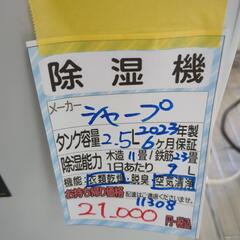 除湿機
メーカー シャープ
2023年製
タンク容量 2.5L 6ヶ月保証
木造 11畳/鉄筋 23畳
除湿能力 1日あたり 9L
機能 衣類乾燥・脱臭 空気清浄
お持ち帰り価格 配達はご遠慮くださいませ。
11308
21,000 円税込